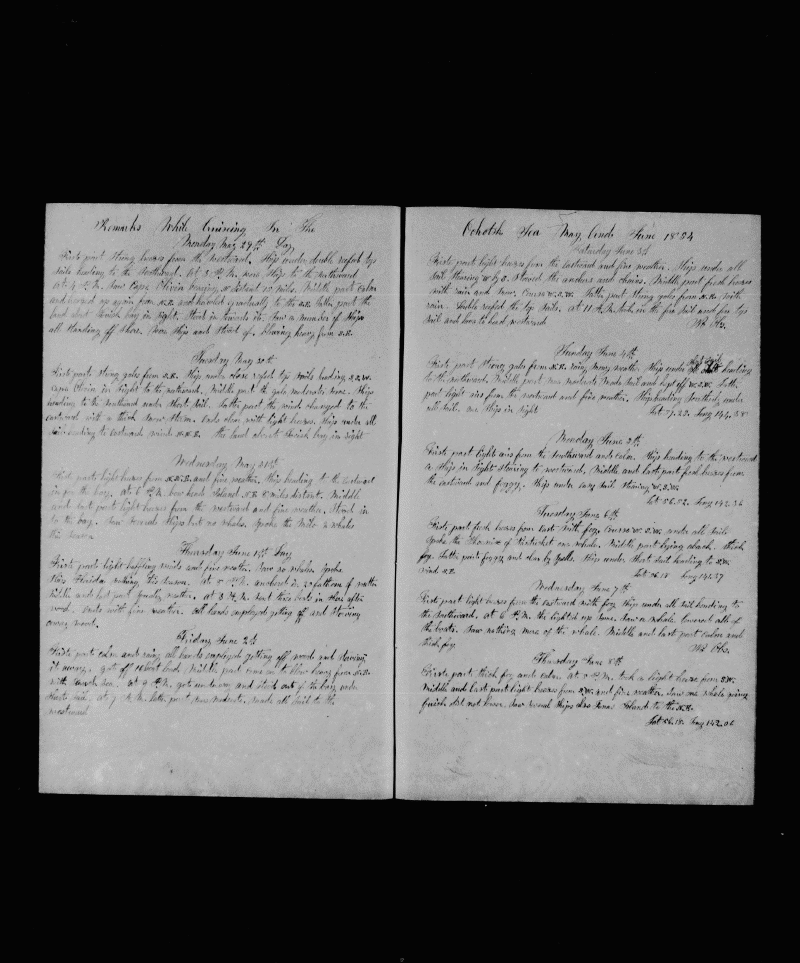 Remarks While Cruising In The
Monday May 29th Day
Firste part strong breezes from the westward. Ship under double reefed top
sails heading to the Southward. At 3 P.M. wore Ship to the northward
At 4 P.M. Saw Cape Olivia bearing distant 20 miles. Middle part calm
and breezed up again from N.E. and hauled gradually to the S.E. Latter part the
land about in sight. Stood in towards it. Saw a number of Ships
all standing off shore. Wore Ship and stood off. Blowing heavy from S.E.
Tuesday May 30th
Firste parte strong gales from S.E. Ship under close reefed top sails heading S.S.W.
Cape Olivia in sight to the northward. Middle part the gale moderate some. Ship
heading to the Southward under Short Sail. Latter part the wind changed to the
eastward with a thick Snow Storm. Ends clear with light breezes. Ship under all
sail heading to Eastward wind N.N.E. the land about bay in sight
Wednesday May 31st
Firste parte light breezes from and fine weather. Ship heading to the
in for the bay. At 6 P.M. bore heads Island N.E. 8 miles distant. Middle
and last part light breezes from the westward and fine weather. Stood in
to the bay. Saw several Ships but no whales. Spoke the Milo 2 whales
this season.
Thursday June 1st Day
Firste part light baffling winds and fine weather. Saw no whales. Spoke
Ship Florida nothing this season. At 5 P.M. anchored in 20 fathoms of water
Middle and last part weather. At 3 A.M. sent three boats in shore after
wood. Ends with fine weather. All hands employed getting off and Stowing
away wood.
Friday June 2d
Firste parte calm and rainy all hands employed getting off wood and Stowing
it away. gote off 10 boat loads. Middle part came on to blow heavy from
with At 2 P.M. gote underway and stood out of the bay under
Shorte sail. At 7 A.M. latter part more moderate. made all sail to the
westward
Ochotsk Sea May Ande June 1854
Saturday June 3d
Firste parte light breezes from the eastward and fine weather. Ship under all
Sail Steering W by S. Stowed the anchors and chains. Middle part fresh breezes
with rain and Snow. Course W.S.W. Latter part strong gales from N.E. with
rain. Double reefed the top Sails. At 11 A.M. took in the fore Sail and fore top
Sail and hove to head westward. No Obs.
Sunday June 4th
Firste parte Strong gales from N.E. rainy snowy weather. Ship under Short Sail heading
to the northward. Middle part more moderate made sail and kept off W.S.W. Latter
part light airs from the westward and fine weather. Ship heading Southerly under
all sail. one Ship in sight
Monday June 5th
Firste part light airs from the Southward and calm. Ship heading to the westward
a Ship in Sight Steering to westward. Middle and last part fresh breezes from
the eastward and foggy. Ship under easy sail Steering W.S.W.
Lat 56.52 Long 142.36
Tuesday June 6th
Firste parte fresh breezes from East with fog. Course W.S.W. under all Sail.
Spoke the Phoenix of Nantucket one whale. Middle part laying aback. thick
fog. Latter part foggy and clear by Spells. Ship under Short Sail heading to S.W.
Wind S.E. Lat 56.18 Long 142.27
Wednesday June 7th
Firste part light breezes from the eastward with fog Ship under all Sail heading to
the Southward. At 6 P.M. the lighted up Some. Saw a whale. lowered all of
the boats. Saw nothing more of the whale. Middle and last part calm and
thick fog No Obs.
Thursday June 8th
Firste parte thick fog and calm. At 5 P.M. took a light breeze from S.W.
Middle and last part light breezes from S.W. and fine weather. Saw one whale going
quick did not lower. Saw several Ships also Jonas Island to the N.E.
Lat 56.18 Long 142.06